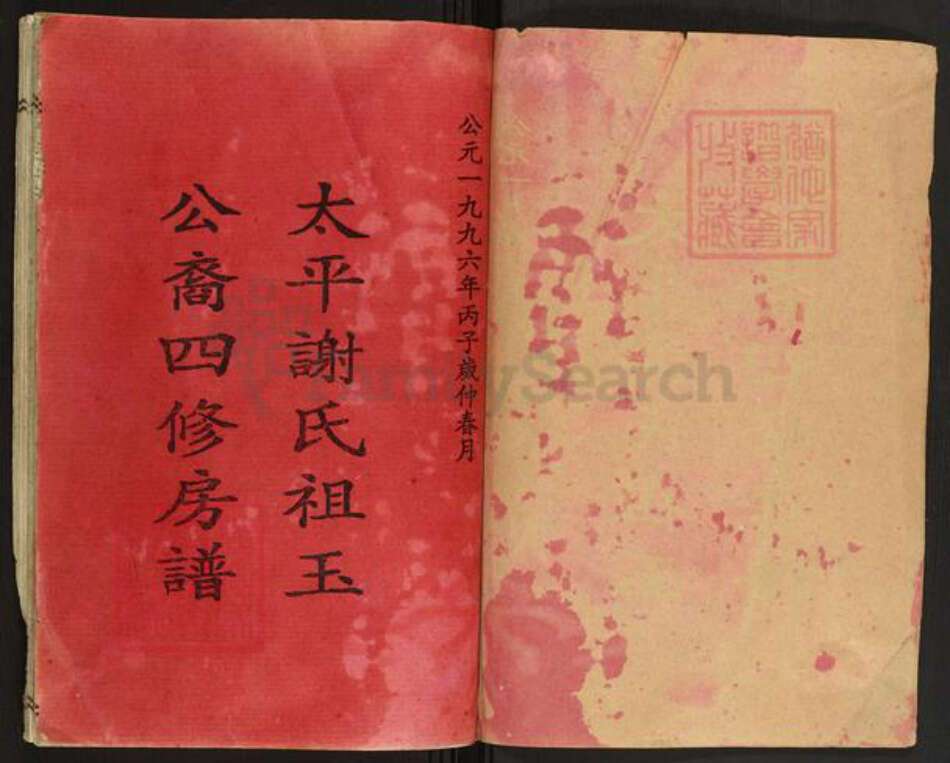 猶他家
譜學會
收藏
公元一九九六年丙子歲仲春月
太平謝氏祖玉
公裔四修房譜
FamilySearch